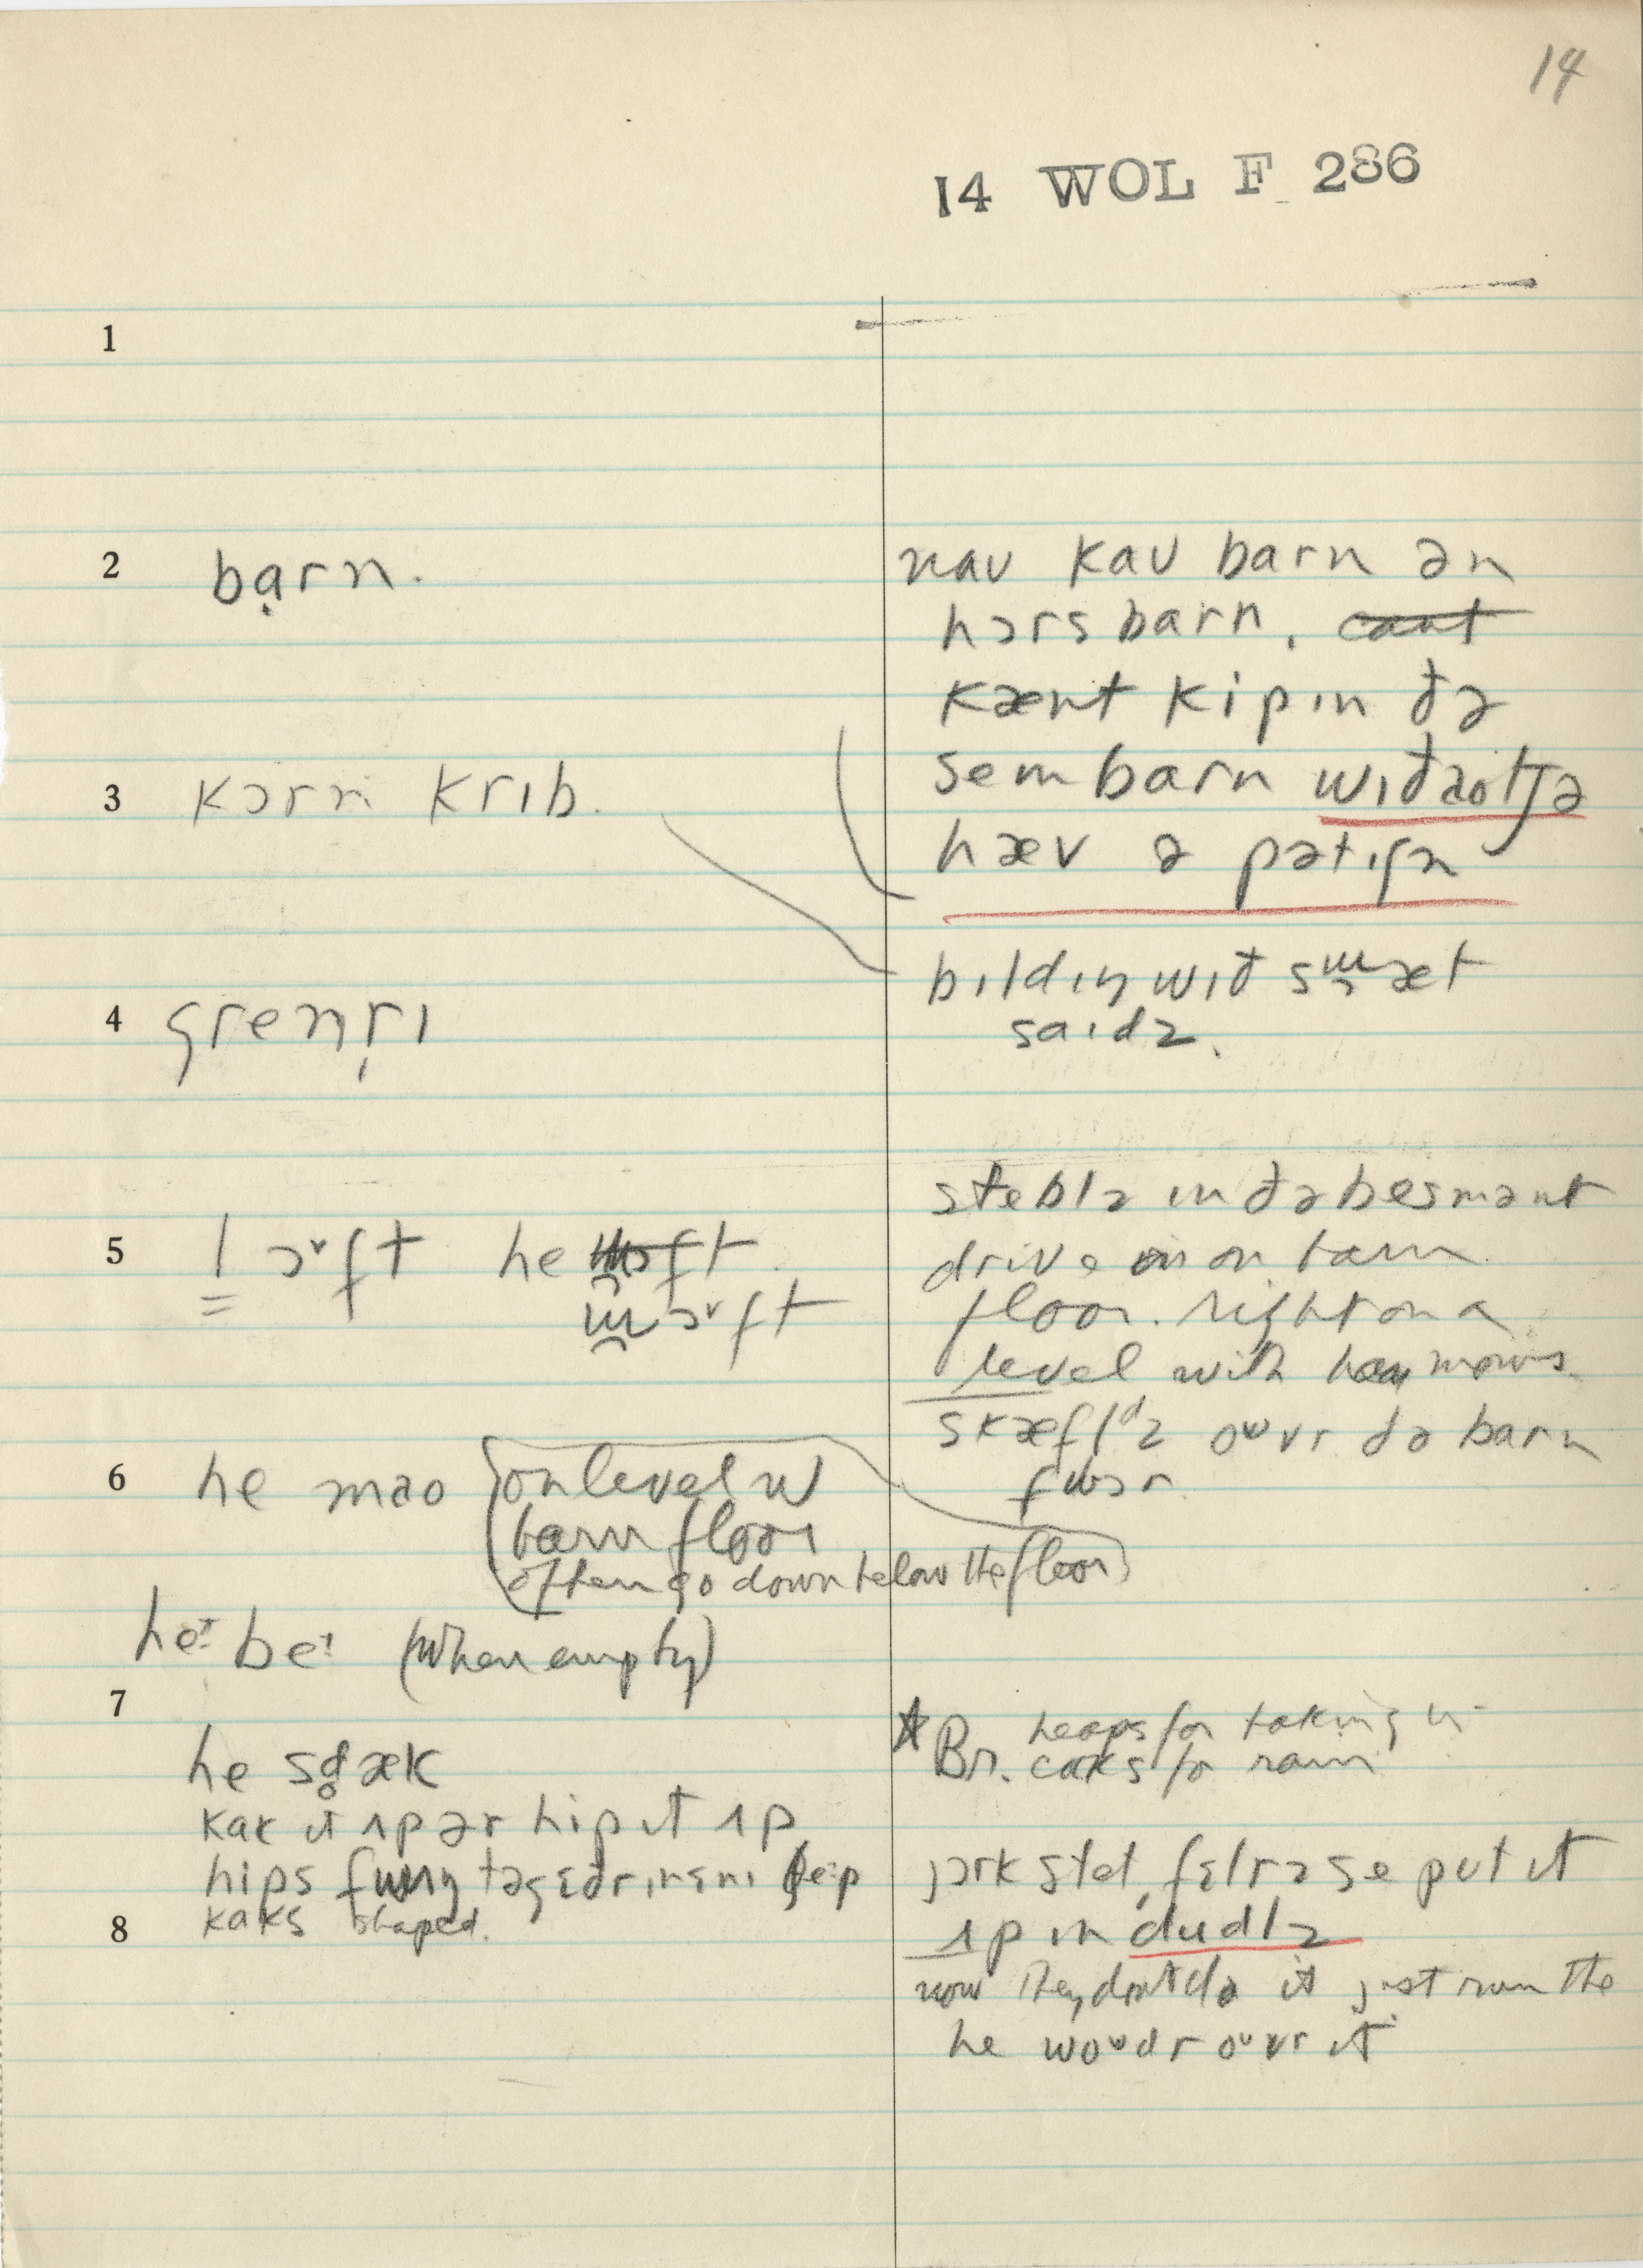 14
14 WOL F 286
1
2 bạrn.
nav kav barn ən
hɔrs barn.
kænt kip ɪn ðə
sem barn wɪðaotʃə
hæv ə pətɪʃn
3 kɔrn krɪb.
bɪldɪŋ wɪð sɯ̯æt
saɪdz.
4 grenr̩ɪ
5 l ɔ˅ft he
ɯ̯ɔ˅ft
stebl̩z ɪn ðə besmənt
drive on barn
floor. right on a
level with hay mows.
skæfl̩dz oᴜvr ðə barn
fɯɔr
6 he mao (on level w
barn floor
often go down below the floor)
he: be: (when empty)
7
he sd̥æk
kak ɪt ʌp ər hip ɪt ʌp
hips fɯŋ təgɛðr ɪn ɛnɪ ʃe:p
kaks shaped.
* Br. heaps for taking in
caks for rain
jɔrk stet, fɛlrz se put ɪt
ʌp ɪn dudl̩z
8
now they don't do it just run the
he loᴜdr oᴜvr ɪt